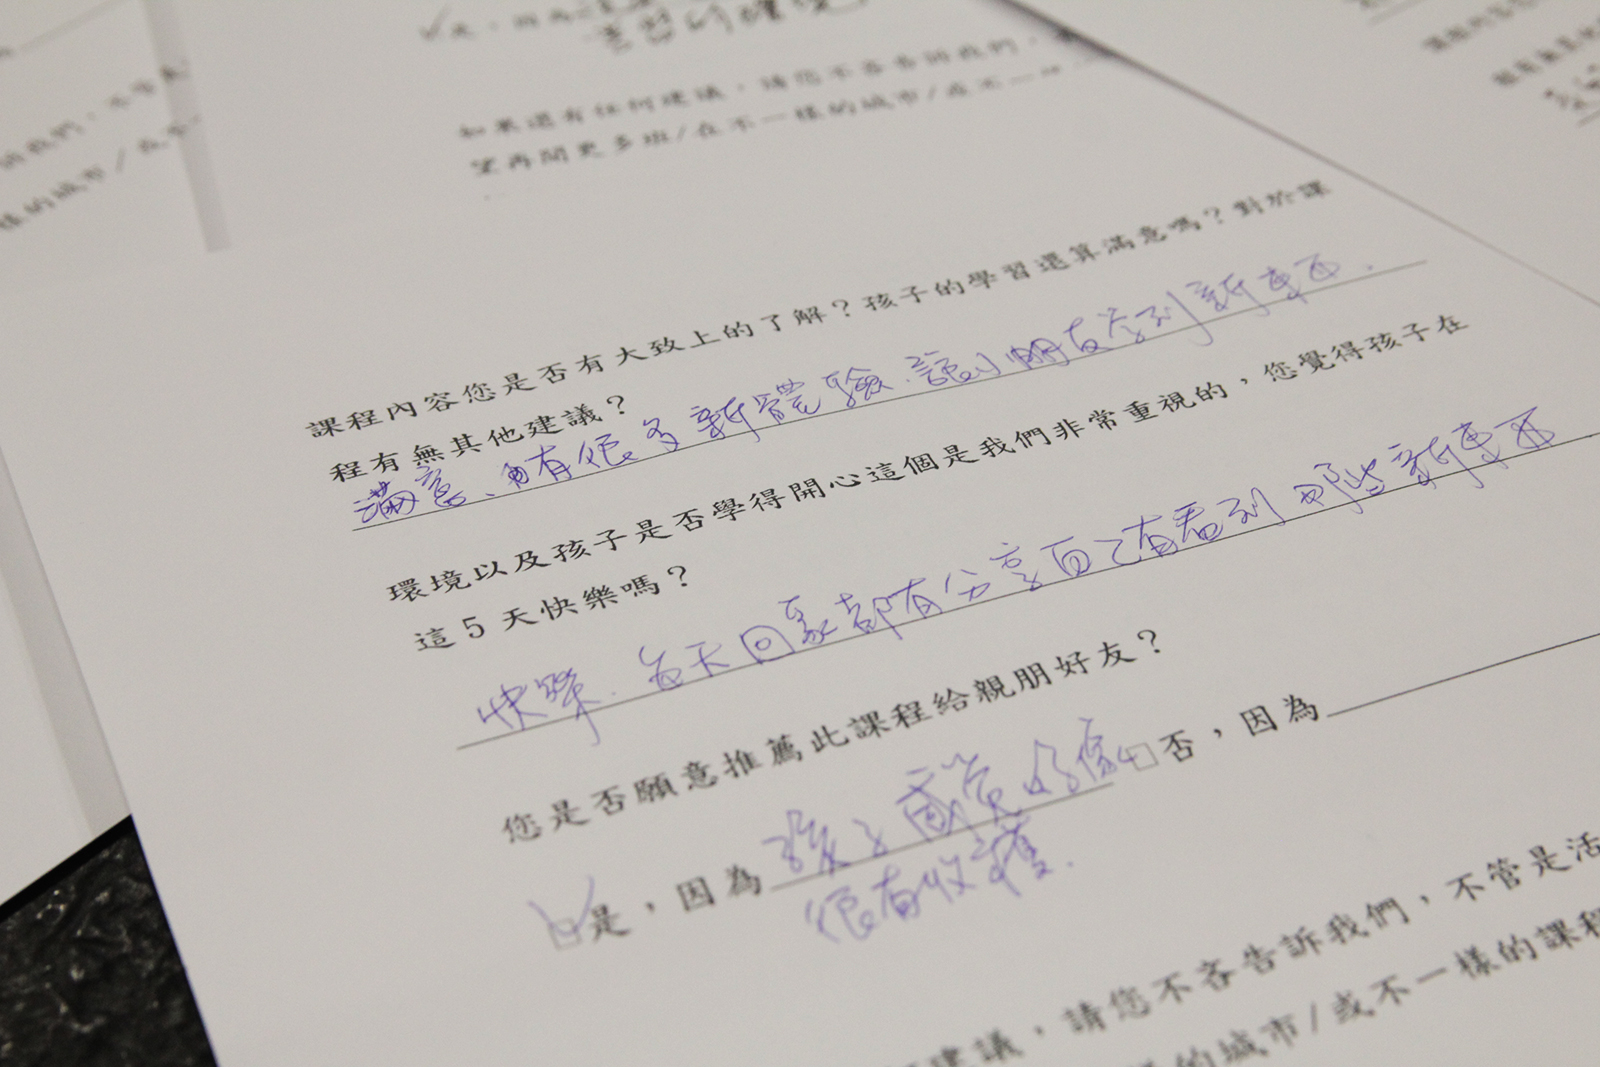 如果還有任何建議，請您不吝告訴我們，
望再開更多班/在不一樣的城市/或不一
課程內容您是否有大致上的了解？孩子的學習還算滿意嗎？對於課
程有無其他建議？
滿意、有很多新體驗.讓小朋友學到新東西.
環境以及孩子是否學得開心這個是我們非常重視的，您覺得孩子在
這5天快樂嗎？
快樂.每天回家都有分享自己有看到那些新東西
您是否願意推薦此課程給親朋好友？
□是，因為孩子感覺好像□否，因為
很有收穫.
建議，請您不吝告訴我們，不管是活
的城市/或不一樣的課程